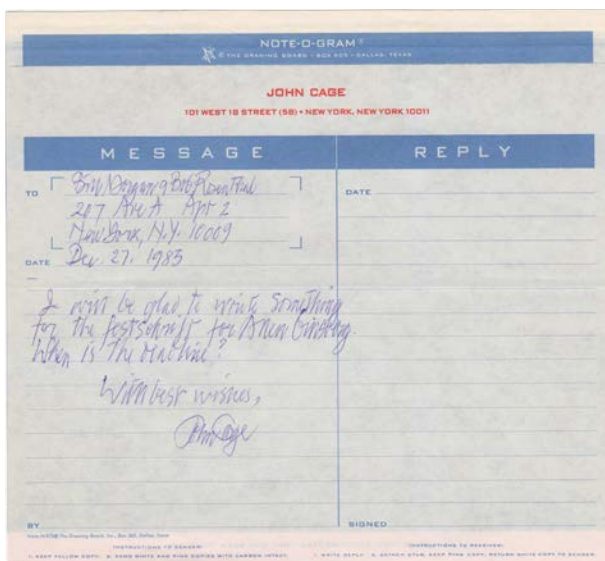 NOTE-O-GRAM ®
© THE DRAWING BOARD • BOX 505 • DALLAS, TEXAS
JOHN CAGE
101 WEST 18 STREET (5B) • NEW YORK, NEW YORK 10011
MESSAGE
REPLY
TO
Bill Morgan & Bob Rosenthal
207 Ave A Apt 2
New York, N.Y. 10009
DATE
Dec. 27. 1983
DATE
I will be glad to write something
for the festschrift for Allen Ginsberg.
When is the deadline?
With best wishes,
John Cage
BY
SIGNED
The Drawing Board, Inc., Box 505, Dallas, Texas
INSTRUCTIONS TO SENDER:
1. KEEP YELLOW COPY. 2. SEND WHITE AND PINK COPIES WITH CARBON INTACT.
INSTRUCTIONS TO RECEIVER:
1. WRITE REPLY. 2. DETACH STUB, KEEP PINK COPY, RETURN WHITE COPY TO SENDER.